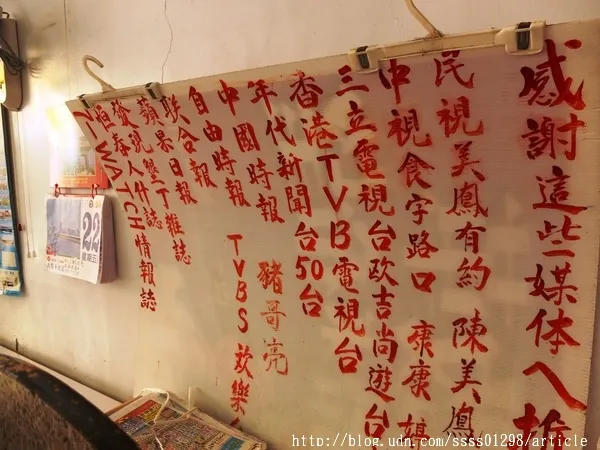 感謝這些媒体人推
民視美鳳有約 陳美鳳
中視食字路口 康康
三立電視台欧吉尚遊台
香港TVB電視台
年代新聞台50台 豬哥亮
中國時報 TVBS 欢樂
自由時報
联合報
蘋果日報
發現人什誌
WATCH情報誌
22
星期五
http://blog.udn.com/ssss01298/article